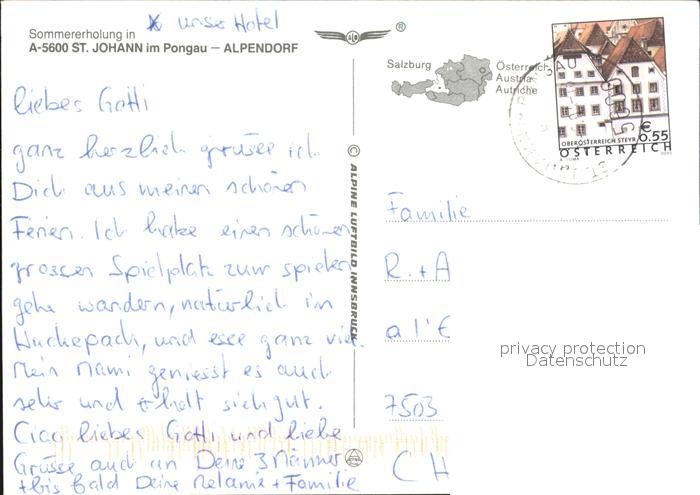 x unser Hotel
Sommererholung in
A-5600 ST. JOHANN im Pongau – ALPENDORF
ALO
®
Salzburg
Österreich
Austria
Autriche
OBERÖSTERREICH STEYR
€ 0.55
ÖSTERREICH
liebes Gotti
ganz herzlich grüsse ich
Dich aus meinen schönen
Ferien. Ich habe einen schönen
grossen Spielplatz zum spielen
gehe wandern, natürlich im
Huckepack, und esse ganz viel.
Mein Mami geniesst es auch
sehr und erholt sich gut.
Ciao liebes Gotti und liebe
Grüsse auch an Deine 3 Männer
+ bis bald Deine Melanie + Familie
© ALPINE LUFTBILD INNSBRUCK
Familie
R. + A
a l'E
7503
CH
privacy protection
Datenschutz